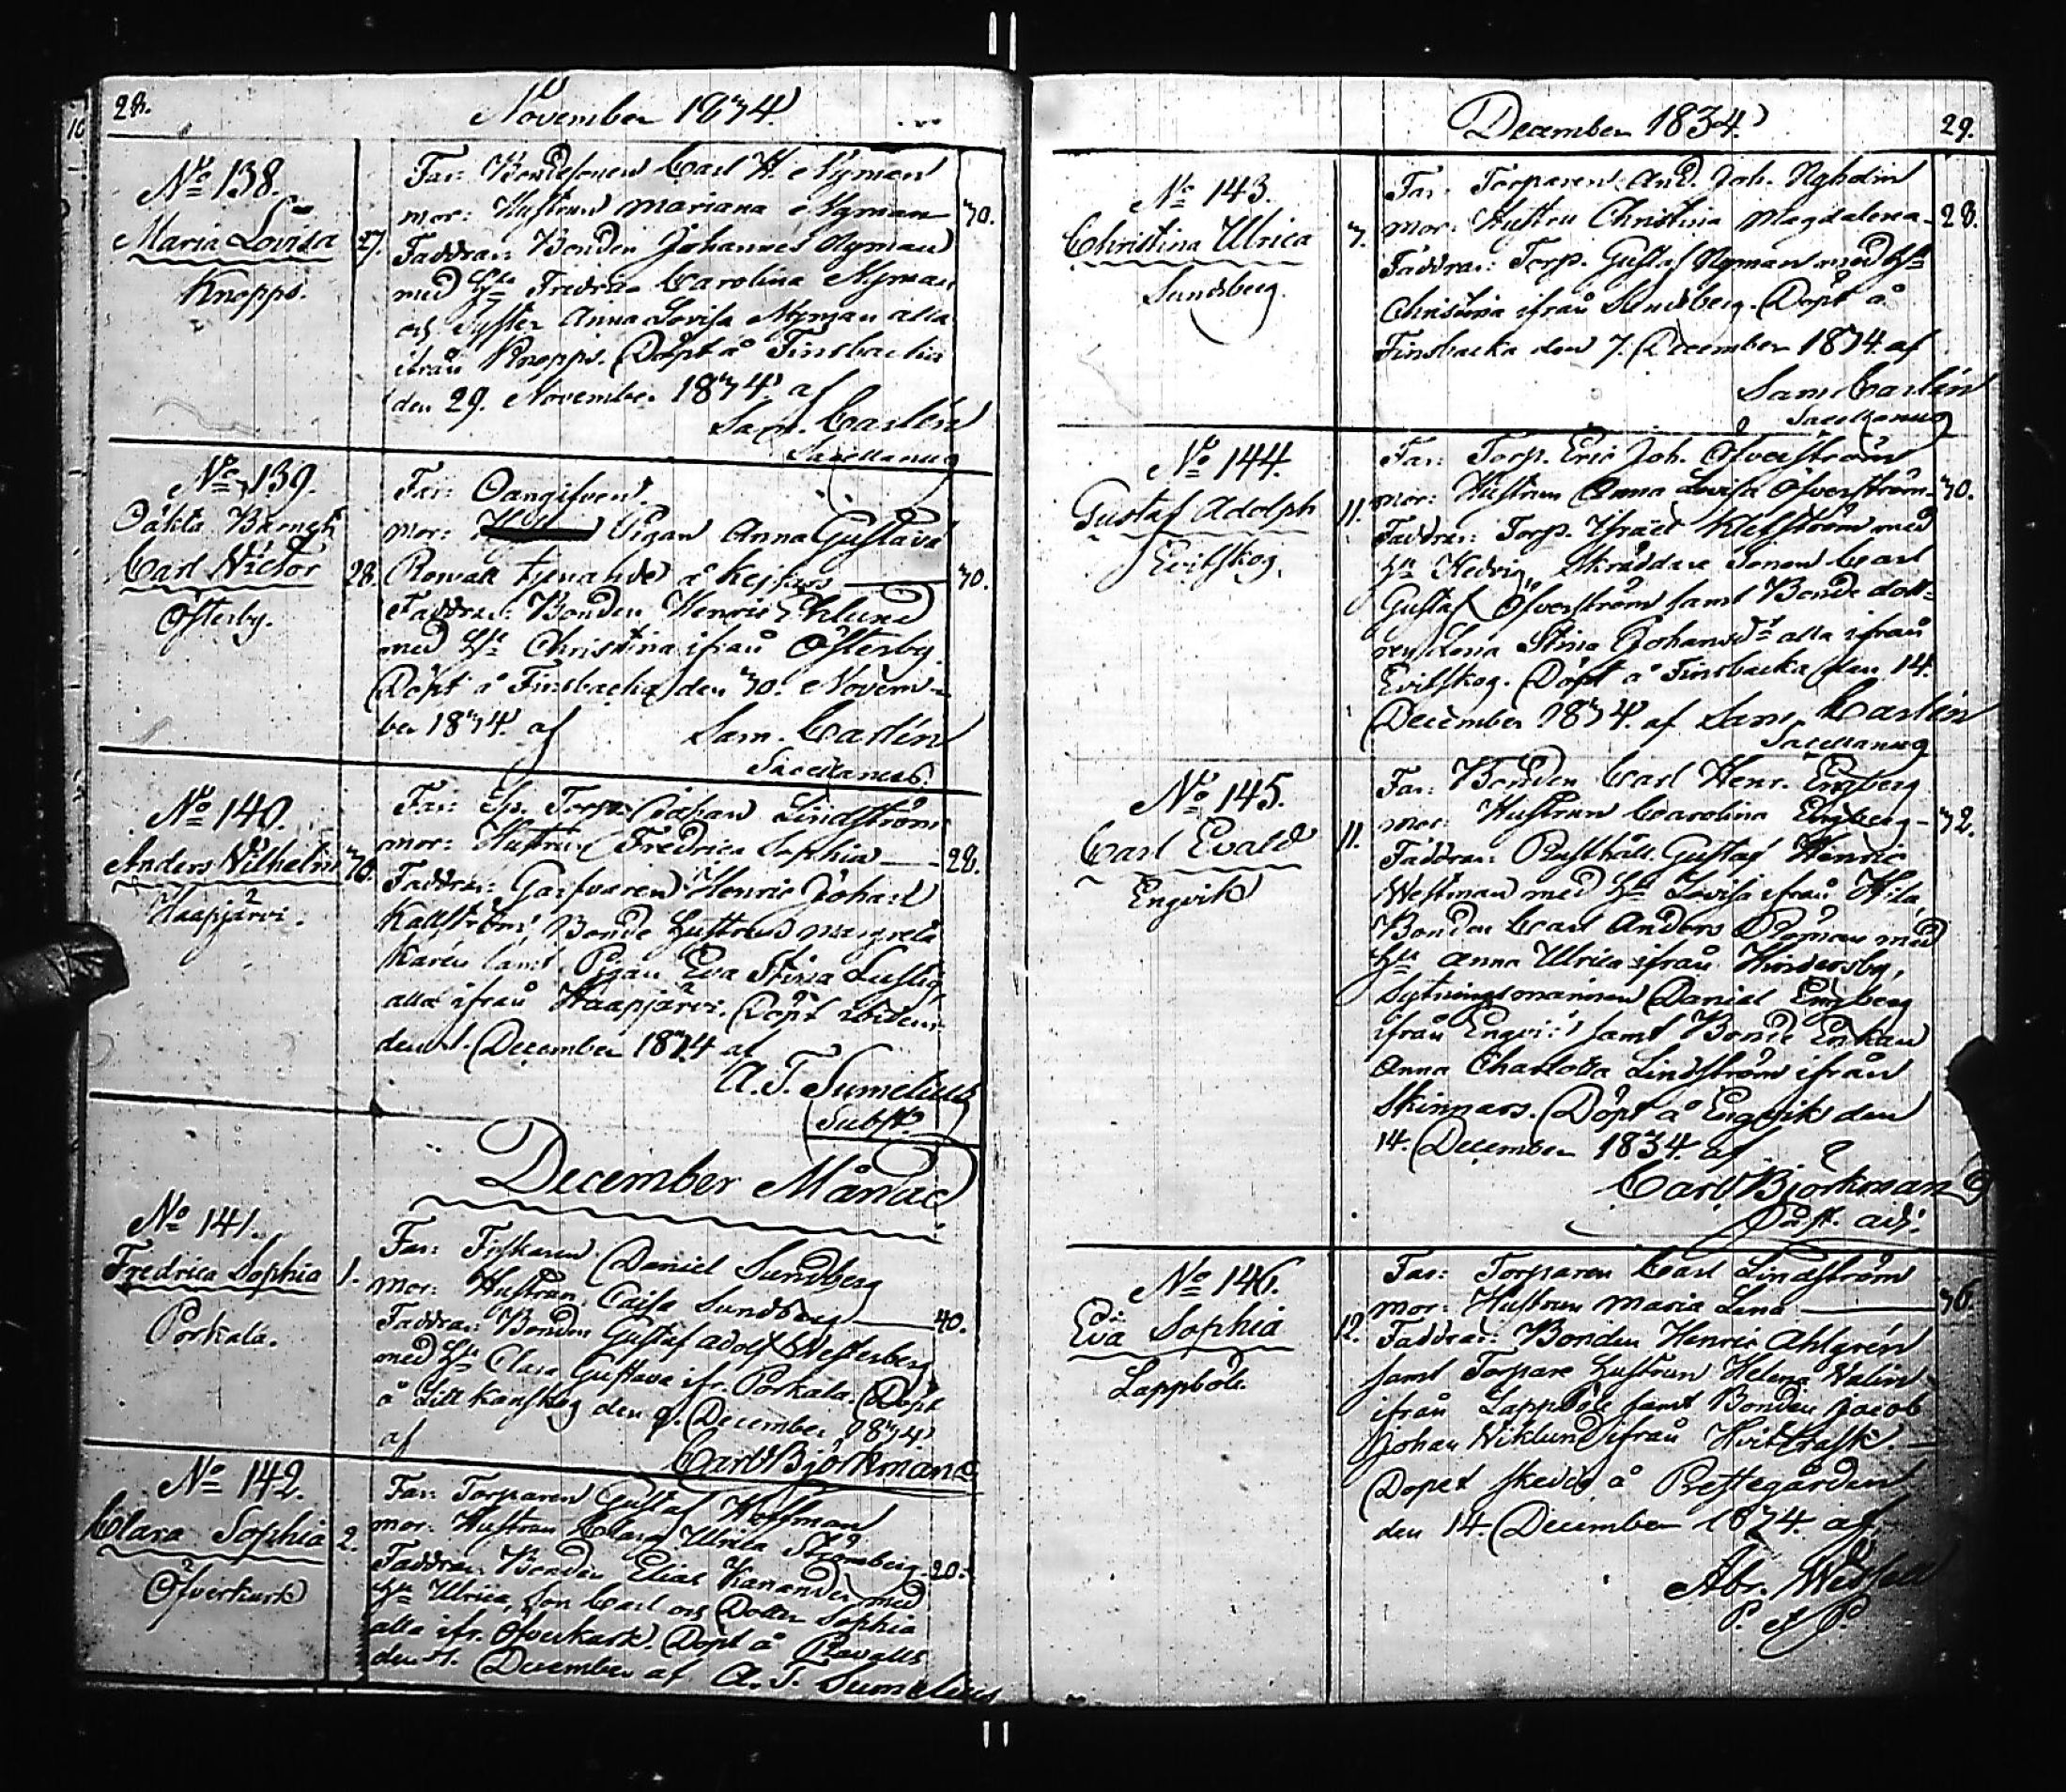 28.
November 1834.
No 138.
Maria Lovisa
Knopps.
27.
Far: Bondesonen Carl H. Nyman
mor: Hustrun Mariana Nyman
30.
Faddrar: Bonden Johannes Nyman
med Hu Fredrica Carolina Nyman
och Syster Anna Lovisa Nyman alla
ifrån Knopps. Döpt å Finsbacka
den 29. November 1834. af
Sam. Carlén
Sacellanus
No 139.
Oäkta Barnet
Carl Victor
Österby.
28.
Far: Oangifven.
mor: Pigan Anna Gustava
Roman tjenande å Kejsars
30.
Faddrar: Bonden Henric Ehlund
med Hu Christina ifrån Österby.
Döpt å Finsbacka den 30. Novem-
ber 1834. af
Sam. Carlén
Sacellanus.
No 140.
Anders Wilhelm
Haapjärvi.
30.
Far: Torp. Johan Lindström
mor: Hustrun Fredrica Sophia
28.
Faddrar: Garfvaren Henric Johan
Kallström, Bonde Hustrun Margreta
Karén samt Pigan Eva Stina Lustig,
alla ifrån Haapjärvi. Döpt ibidem
den 1. December 1834 af
A. T. Sumelius
Subst.
December Månad
No 141.
Fredrica Sophia
Porkala.
1.
Far: Fiskaren Daniel Sundberg
mor: Hustrun Caisa Sundberg
40.
Faddrar: Bonden Gustaf Adolf Westerberg
med Hu Clara Gustava ifr. Porkala. Döpt
å Sillkanskog den 9. December 1834.
af
Carl Björkman
No 142.
Clara Sophia
Öfverkurk
2.
Far: Torparen Gustaf Hoffman
mor: Hustrun Clara Ulrica Strömberg
20.
Faddrar: Bonden Elias Kanander med
Hu Ulrica, Son Carl och Dotter Sophia
alla ifr. Öfverkurk. Döpt å Ravalls
den 4. December af A. T. Sumelius
December 1834.
29.
No 143.
Christina Ulrica
Sundsberg.
3.
Far: Torparen And. Joh. Nyholm
mor: Hustru Christina Magdalena
28.
Faddrar: Torp. Gustaf Nyman med Hu
Christina ifrån Sundsberg. Döpt å
Finsbacka den 7. December 1834. af
Sam. Carlén
Sacellanus
No 144.
Gustaf Adolph
Evitskog.
11.
Far: Torp. Eric Joh. Öfverström
mor: Hustrun Anna Lovisa Öfverström
30.
Faddrar: Torp. Israel Klefström med
Hu Hedvig, Skräddare Sonen Carl
Gustaf Öfverström samt Bonde dott-
ren Lena Stina Johansdr alla ifrån
Evitskog. Döpt å Finsbacka den 14.
December 1834. af Sam. Carlén
Sacellanus
No 145.
Carl Evald
Engvik
11.
Far: Bonden Carl Henr. Engberg
mor: Hustrun Carolina Engberg
32.
Faddrar: Rusthåll. Gustaf Henric
Westman med Hu Lovisa ifrån Hila,
Bonden Carl Anders Roman med
Hu Anna Ulrica ifrån Hindersby,
Sytningsmannen Daniel Engberg
ifrån Engvik samt Bonde Enkan
Anna Charlotta Lindström ifrån
Skinnars. Döpt å Engvik den
14. December 1834. af
Carl Björkman
Past. adj.
No 146.
Eva Sophia
Lappböle.
12.
Far: Torparen Carl Lindström
mor: Hustrun Maria Lena
36.
Faddrar: Bonden Henric Ahlgrén
samt Torpare Hustrun Helena Walin
ifrån Lappböle samt Bonden Jacob
Johan Wiklund ifrån Hvitträsk.
Dopet skedde å Prestegården
den 14. December 1834. af
Abr.
P. et P.